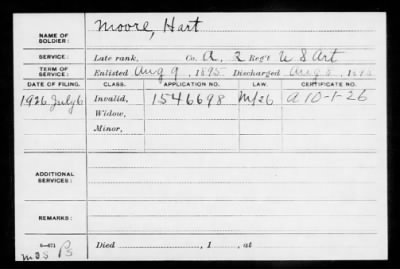 Moore, Hart
NAME OF SOLDIER:
SERVICE: Late rank, Co. A, 2 Reg't U S Art
TERM OF SERVICE: Enlisted Aug 9, 1895 Discharged Aug 8, 1898
DATE OF FILING. CLASS. APPLICATION NO. LAW. CERTIFICATE NO.
1926 July 6 Invalid, 1546698 A 10-1-26
Widow,
Minor,
ADDITIONAL SERVICES:
REMARKS:
Died , 1 , at